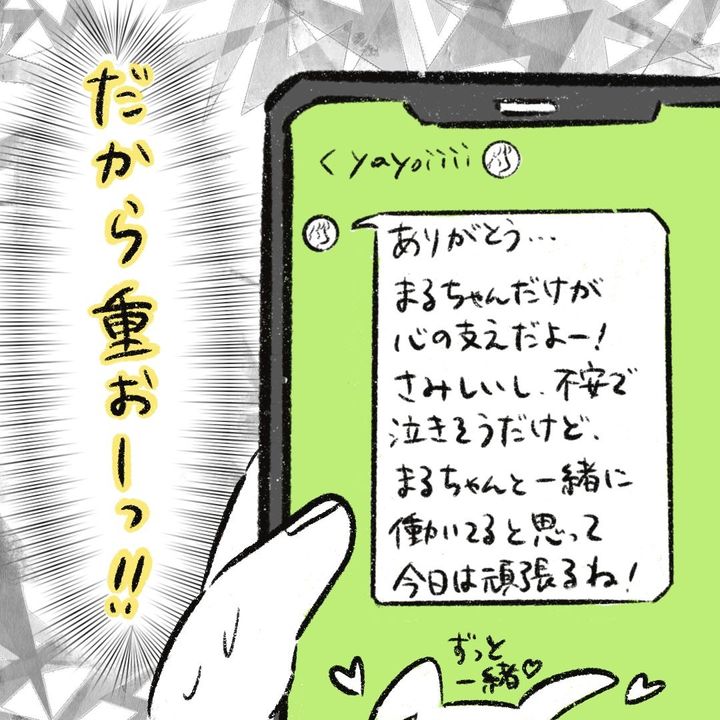 だから重おーっ!!
< yayoiiii
ありがとう…
まるちゃんだけが
心の支えだよー!
さみしいし、不安で
泣きそうだけど、
まるちゃんと一緒に
働いてると思って
今日は頑張るね!
ずっと
一緒♡